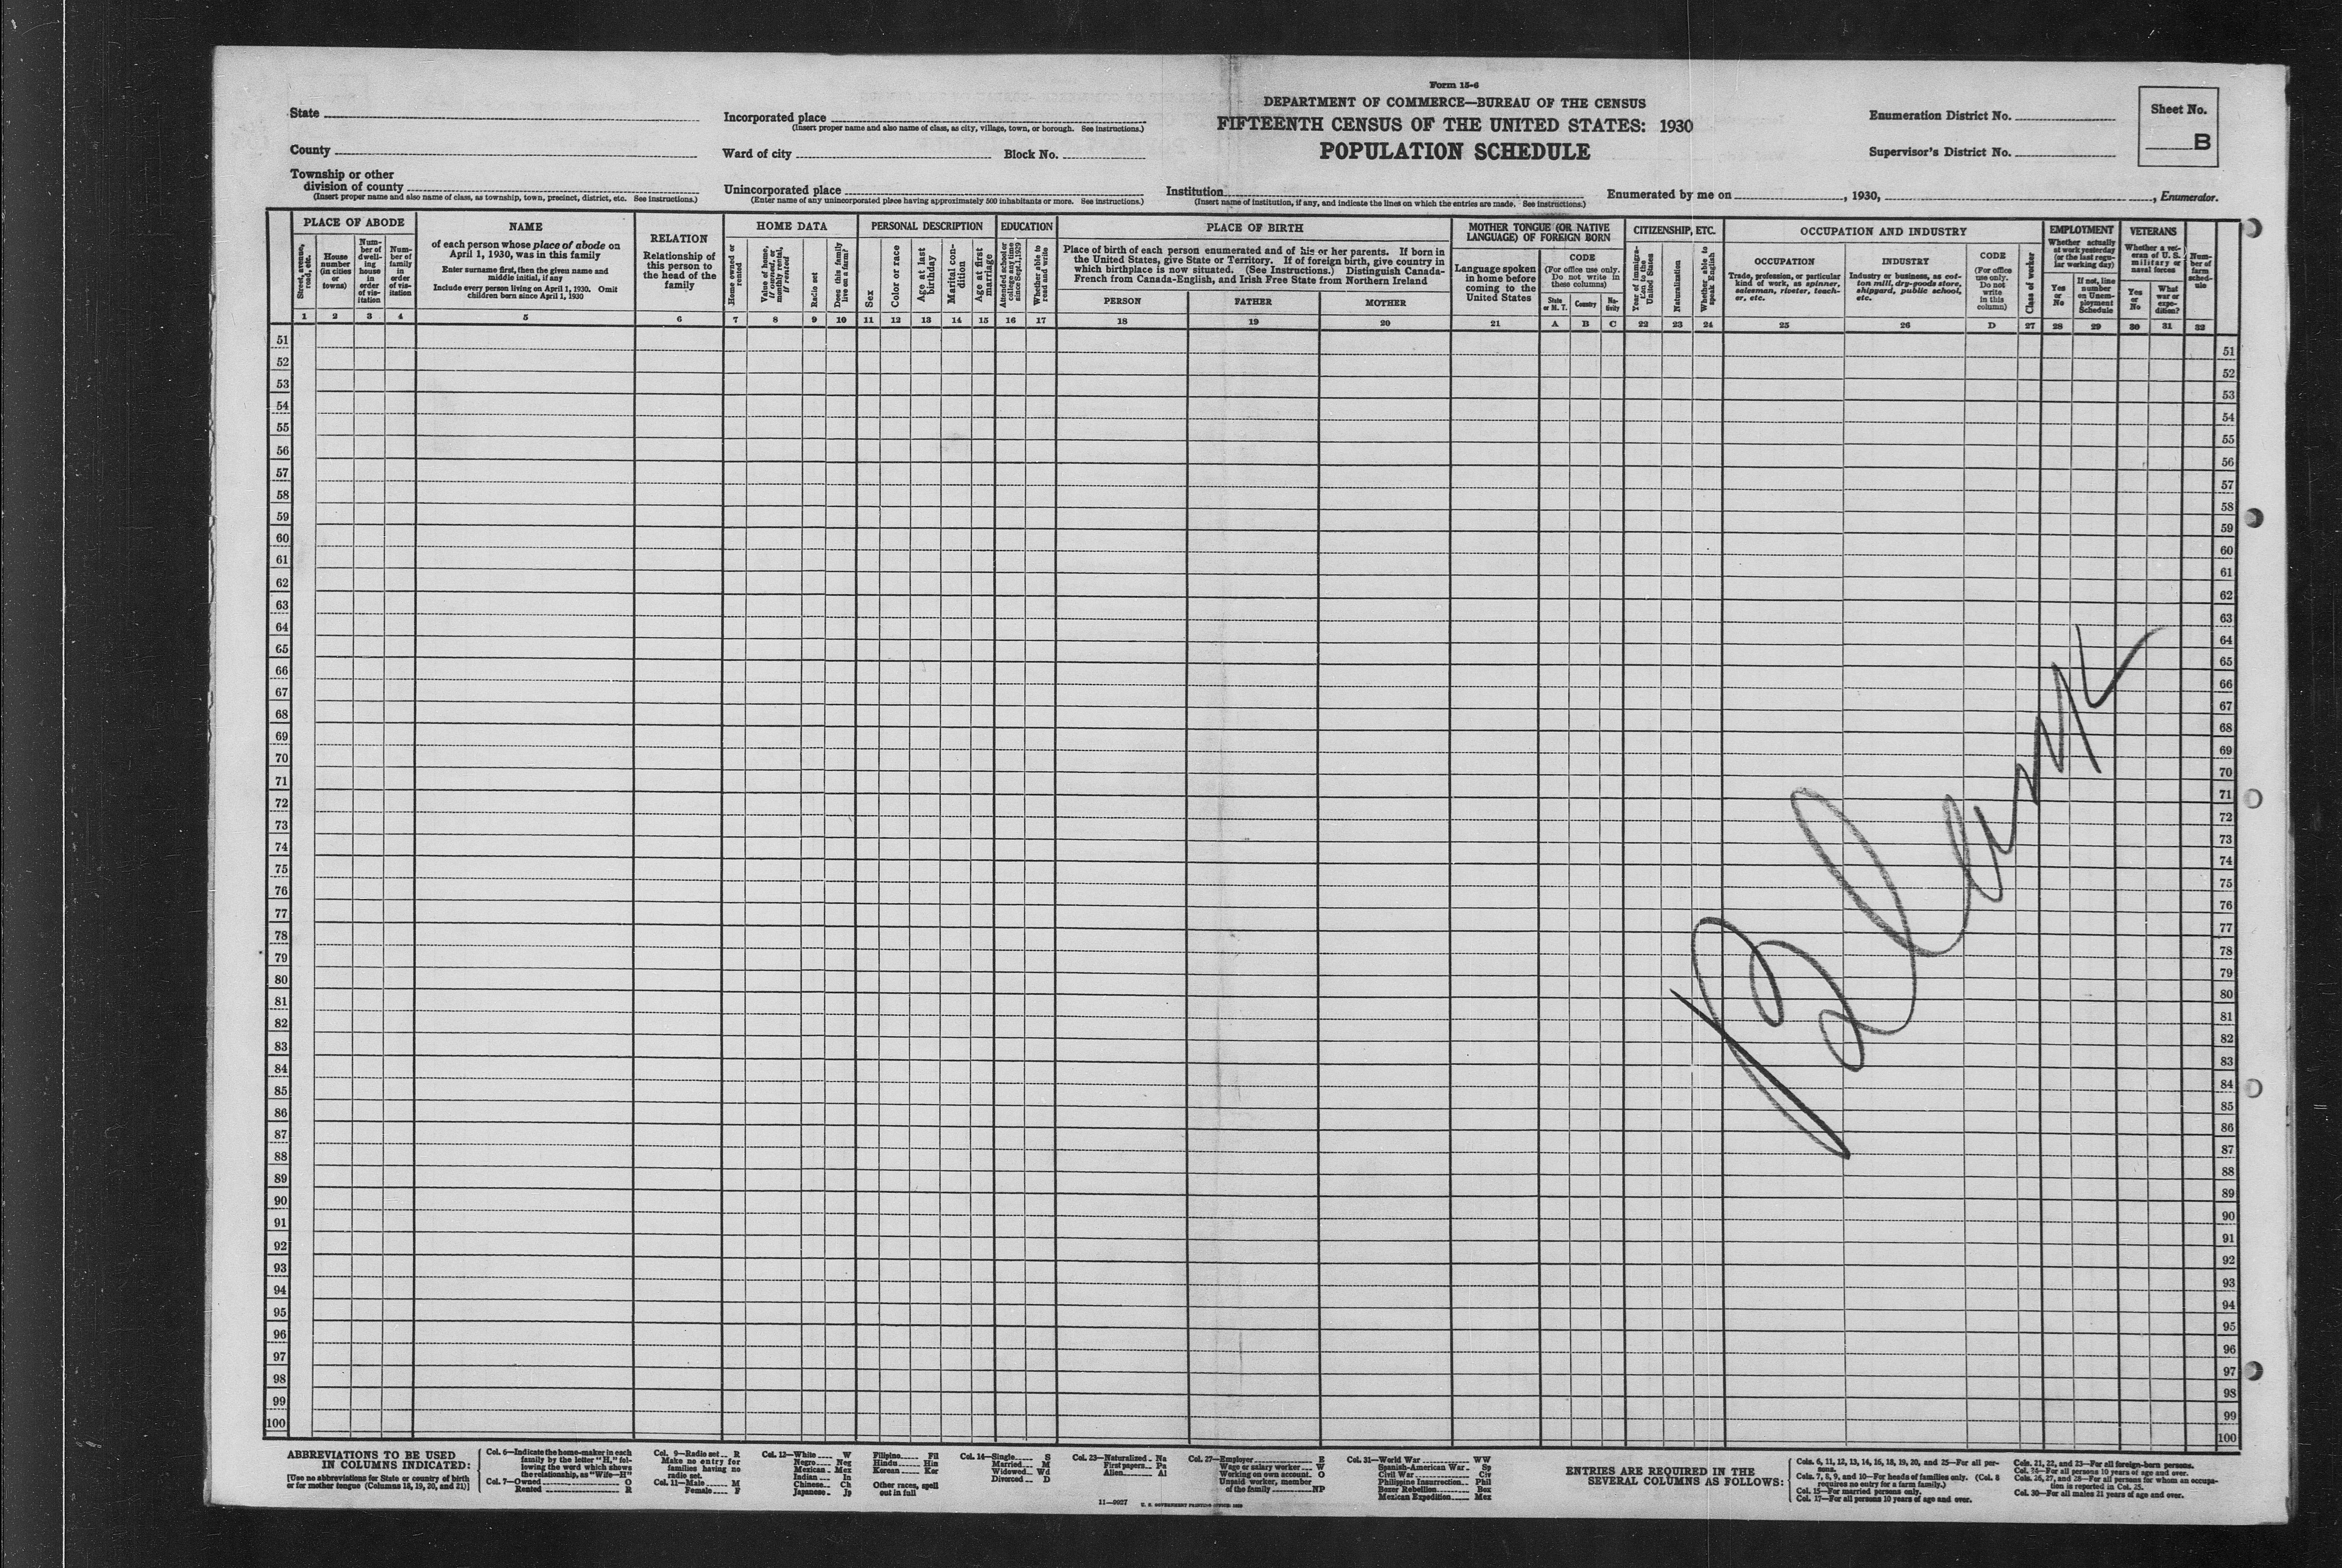 Form 15-6
DEPARTMENT OF COMMERCE—BUREAU OF THE CENSUS
FIFTEENTH CENSUS OF THE UNITED STATES: 1930
POPULATION SCHEDULE
State
County
Township or other
division of county
(Insert proper name and also name of class, as township, town, precinct, district, etc. See instructions.)
Incorporated place
(Insert proper name and also name of class, as city, village, town, or borough. See instructions.)
Ward of city Block No.
Unincorporated place
(Enter name of any unincorporated place having approximately 500 inhabitants or more. See instructions.)
Institution
(Insert name of institution, if any, and indicate the lines on which the entries are made. See instructions.)
Enumeration District No.
Supervisor's District No.
Enumerated by me on , 1930, , Enumerator.
Sheet No.
B
PLACE OF ABODE
Street, avenue, road, etc.
House number (in cities or towns)
Number of dwelling house in order of visitation
Number of family in order of visitation
NAME
of each person whose place of abode on
April 1, 1930, was in this family
Enter surname first, then the given name and
middle initial, if any
Include every person living on April 1, 1930. Omit
children born since April 1, 1930
RELATION
Relationship of
this person to
the head of the
family
HOME DATA
Home owned or rented
Value of home, if owned, or monthly rental, if rented
Radio set
Does this family live on a farm?
PERSONAL DESCRIPTION
Sex
Color or race
Age at last birthday
Marital condition
Age at first marriage
EDUCATION
Attended school or college any time since Sept. 1, 1929
Whether able to read and write
PLACE OF BIRTH
Place of birth of each person enumerated and of his or her parents. If born in
the United States, give State or Territory. If of foreign birth, give country in
which birthplace is now situated. (See Instructions.) Distinguish Canada-
French from Canada-English, and Irish Free State from Northern Ireland
PERSON FATHER MOTHER
MOTHER TONGUE (OR NATIVE
LANGUAGE) OF FOREIGN BORN
Language spoken
in home before
coming to the
United States
CODE
(For office use only.
Do not write in
these columns)
State or M. T. Country Nativity
CITIZENSHIP, ETC.
Year of immigration to the United States
Naturalization
Whether able to speak English
OCCUPATION AND INDUSTRY
OCCUPATION
Trade, profession, or particular
kind of work, as spinner,
salesman, riveter, teach-
er, etc.
INDUSTRY
Industry or business, as cot-
ton mill, dry-goods store,
shipyard, public school,
etc.
CODE
(For office
use only.
Do not
write
in this
column)
Class of worker
EMPLOYMENT
Whether actually
at work yesterday
(or the last regu-
lar working day)
Yes or No
If not, line number on Unemployment Schedule
VETERANS
Whether a vet-
eran of U. S.
military or
naval forces
Yes or No
What war or expedition?
Number of farm schedule
1 2 3 4 5 6 7 8 9 10 11 12 13 14 15 16 17 18 19 20 21 A B C 22 23 24 25 26 D 27 28 29 30 31 32
51 51
52 52
53 53
54 54
55 55
56 56
57 57
58 58
59 59
60 60
61 61
62 62
63 63
64 64
65 65
66 66
67 67
68 68
69 69
70 70
71 71
72 72
73 73
74 74
75 75
76 76
77 77
78 78
79 79
80 80
81 81
82 82
83 83
84 84
85 85
86 86
87 87
88 88
89 89
90 90
91 91
92 92
93 93
94 94
95 95
96 96
97 97
98 98
99 99
100 100
Blank
ABBREVIATIONS TO BE USED
IN COLUMNS INDICATED:
[Use no abbreviations for State or country of birth
or for mother tongue (Columns 18, 19, 20, and 21)]
Col. 6—Indicate the home-maker in each
family by the letter "H," fol-
lowing the word which shows
the relationship, as "Wife—H"
Col. 7—Owned O
Rented R
Col. 9—Radio set R
Make no entry for
families having no
radio set.
Col. 11—Male M
Female F
Col. 12—White W
Negro Neg
Mexican Mex
Indian In
Chinese Ch
Japanese Jp
Filipino Fil
Hindu Hin
Korean Kor
Other races, spell
out in full
Col. 14—Single S
Married M
Widowed Wd
Divorced D
Col. 23—Naturalized Na
First papers Pa
Alien Al
Col. 27—Employer E
Wage or salary worker W
Working on own account O
Unpaid worker, member
of the family NP
Col. 31—World War WW
Spanish-American War Sp
Civil War Civ
Philippine Insurrection Phil
Boxer Rebellion Box
Mexican Expedition Mex
ENTRIES ARE REQUIRED IN THE
SEVERAL COLUMNS AS FOLLOWS:
Cols. 6, 11, 12, 13, 14, 16, 18, 19, 20, and 25—For all per-
sons.
Cols. 7, 8, 9, and 10—For heads of families only. (Col. 8
requires no entry for a farm family.)
Col. 15—For married persons only.
Col. 17—For all persons 10 years of age and over.
Cols. 21, 22, and 23—For all foreign-born persons.
Col. 24—For all persons 10 years of age and over.
Cols. 26, 27, and 28—For all persons for whom an occupa-
tion is reported in Col. 25.
Col. 30—For all males 21 years of age and over.
11—9927